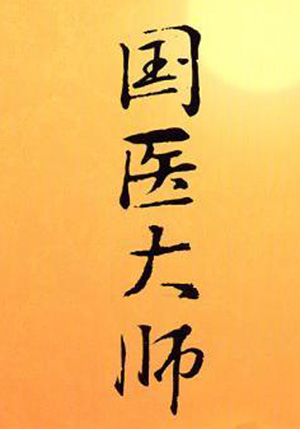 国医大师